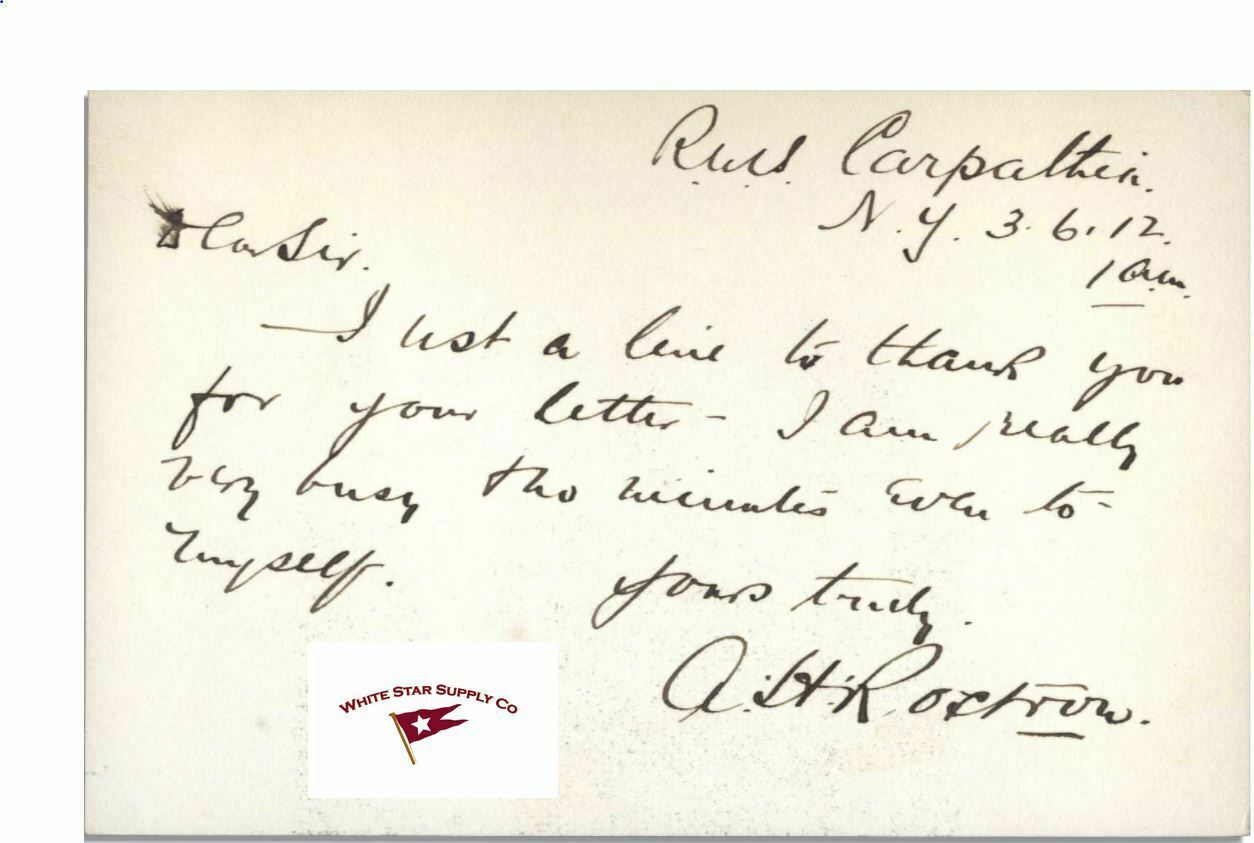 R.M.S. Carpathia.
N.Y. 3.6.12.
1 a.m.
Dear Sir.
Just a line to thank you
for your letter - I am really
very busy & no minutes even to
myself.
Yours truly.
A.H. Rostron.
WHITE STAR SUPPLY CO